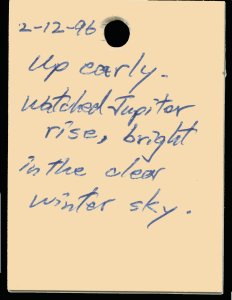 2-12-96
Up early.
Watched Jupiter
rise, bright
in the clear
winter sky.